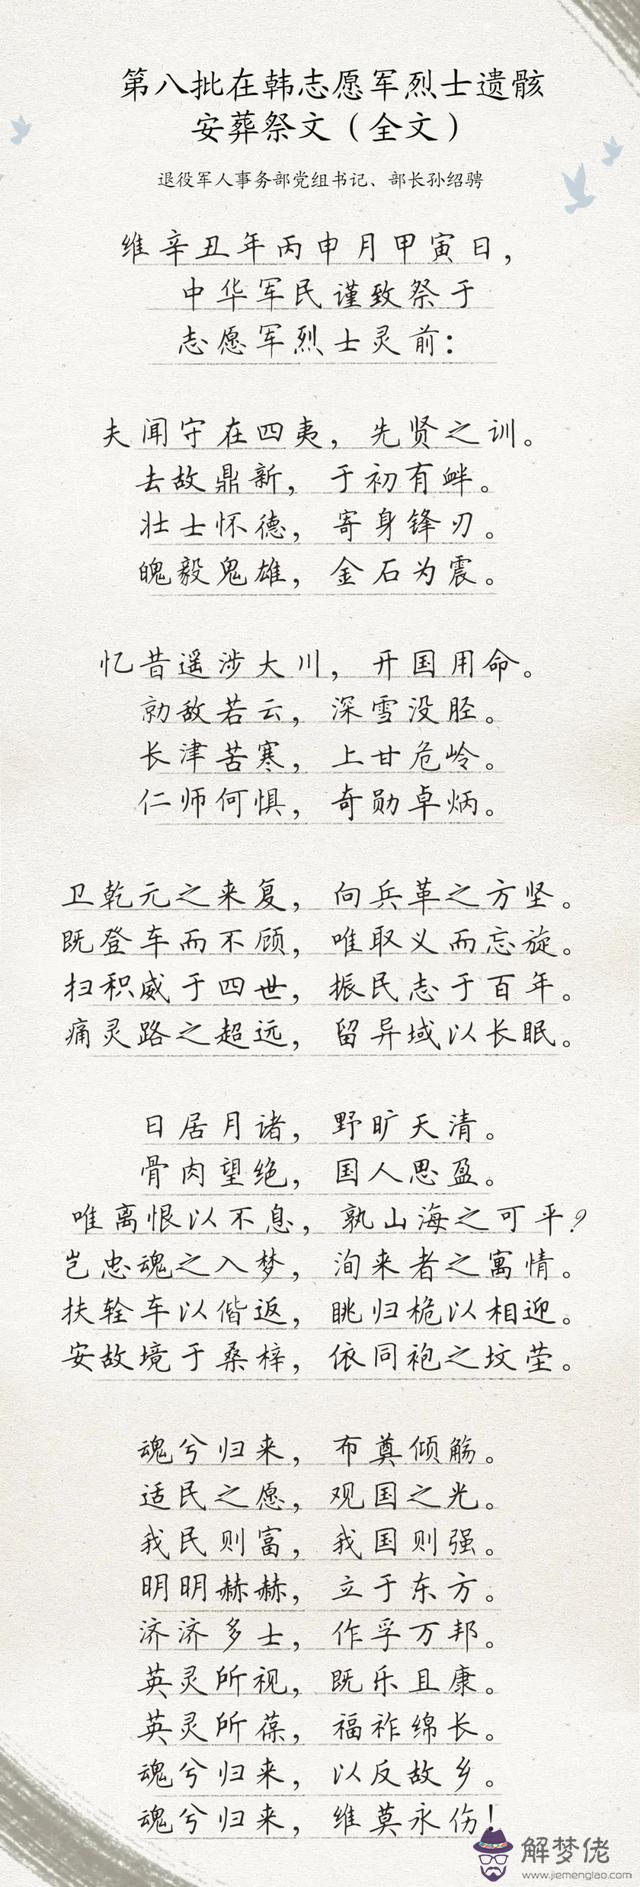 第八批在韩志愿军烈士遗骸
安葬祭文（全文）
退役军人事务部党组书记、部长孙绍骋
维辛丑年丙申月甲寅日，
中华军民谨致祭于
志愿军烈士灵前：
夫闻守在四夷，先贤之训。
去故鼎新，于初有衅。
壮士怀德，寄身锋刃。
魄毅鬼雄，金石为震。
忆昔遥涉大川，开国用命。
勍敌若云，深雪没胫。
长津苦寒，上甘危岭。
仁师何惧，奇勋卓炳。
卫乾元之来复，向兵革之方坚。
既登车而不顾，唯取义而忘旋。
扫积威于四世，振民志于百年。
痛灵路之超远，留异域以长眠。
日居月诸，野旷天清。
骨肉望绝，国人思盈。
唯离恨以不息，孰山海之可平？
岂忠魂之入梦，洵来者之寓情。
扶辁车以偕返，眺归桅以相迎。
安故境于桑梓，依同袍之坟茔。
魂兮归来，布奠倾觞。
适民之愿，观国之光。
我民则富，我国则强。
明明赫赫，立于东方。
济济多士，作孚万邦。
英灵所视，既乐且康。
英灵所葆，福祚绵长。
魂兮归来，以反故乡。
魂兮归来，维莫永伤！
解梦佬
www.jiemenglao.com